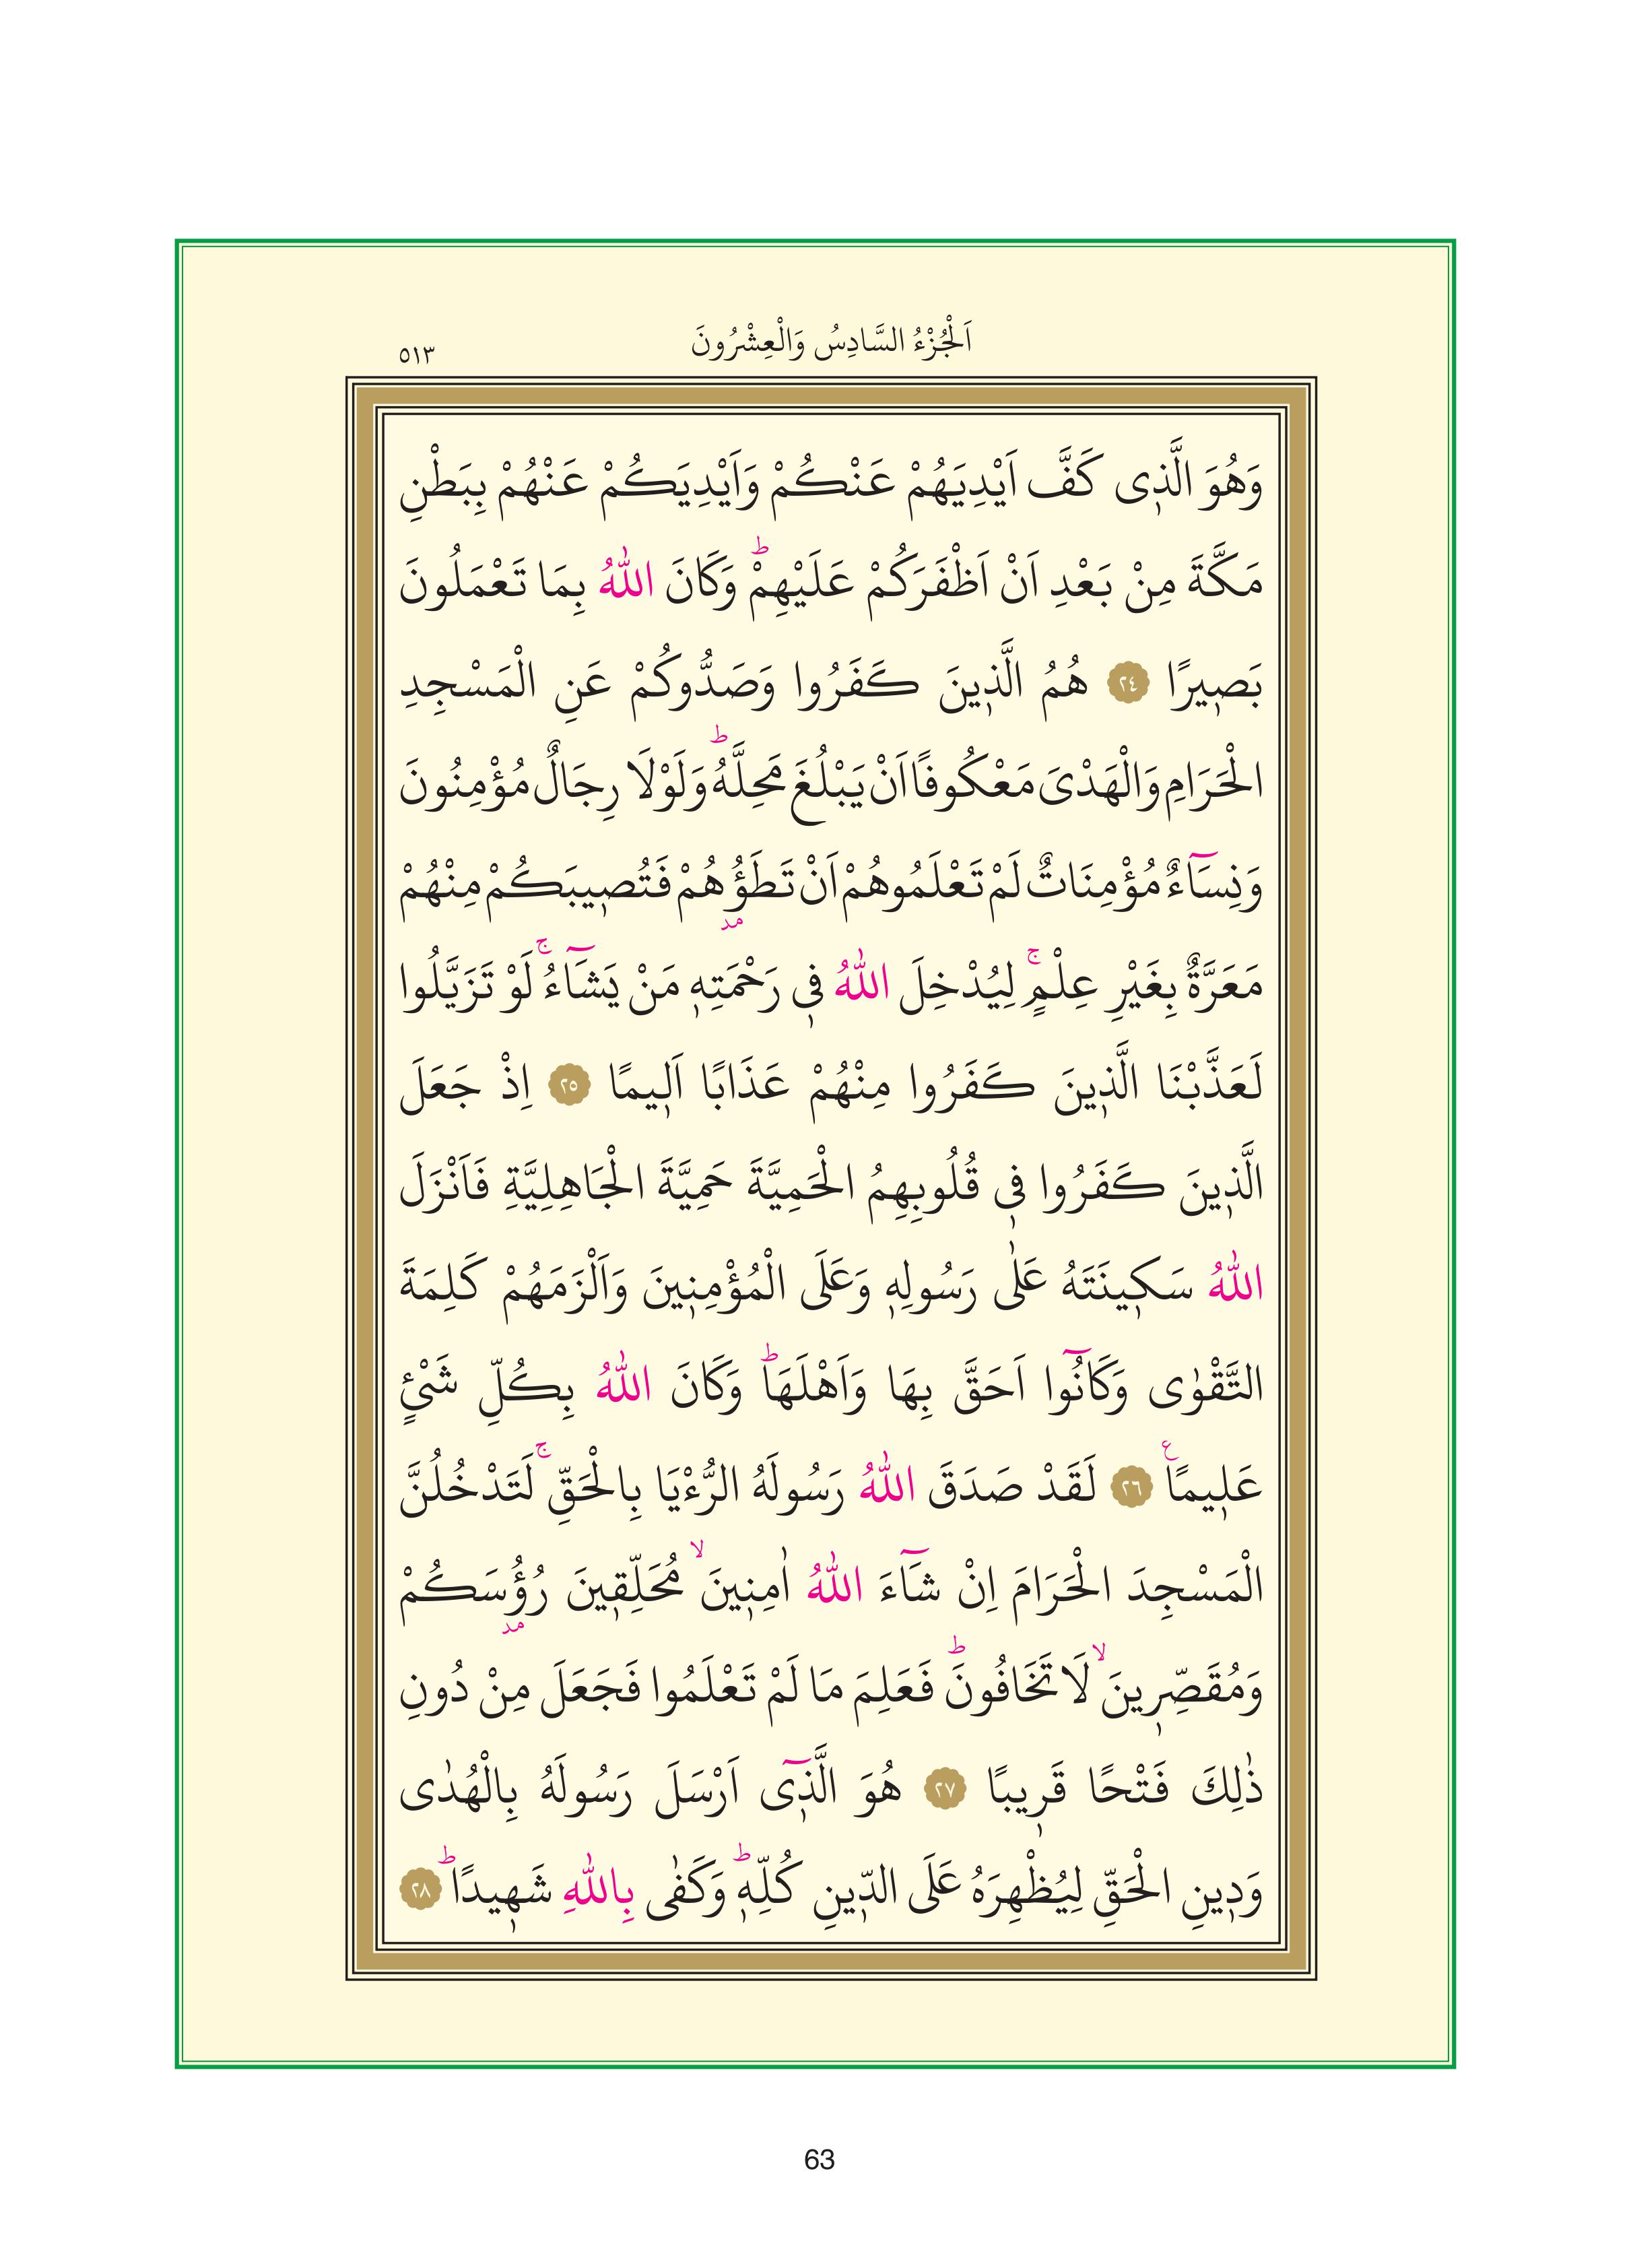 اَلْجُزْءُ السَّادِسُ وَالْعِشْرُونَ
٥١٣
وَهُوَ الَّذ۪ى كَفَّ اَيْدِيَهُمْ عَنْكُمْ وَاَيْدِيَكُمْ عَنْهُمْ بِبَطْنِ
مَكَّةَ مِنْ بَعْدِ اَنْ اَظْفَرَكُمْ عَلَيْهِمْۜ وَكَانَ اللّٰهُ بِمَا تَعْمَلُونَ
بَص۪يرًا ٢٤ هُمُ الَّذ۪ينَ كَفَرُوا وَصَدُّوكُمْ عَنِ الْمَسْجِدِ
الْحَرَامِ وَالْهَدْىَ مَعْكُوفًا اَنْ يَبْلُغَ مَحِلَّهُۜ وَلَوْلَا رِجَالٌ مُؤْمِنُونَ
وَنِسَٓاءٌ مُؤْمِنَاتٌ لَمْ تَعْلَمُوهُمْ اَنْ تَطَؤُ۫هُمْ فَتُص۪يبَكُمْ مِنْهُمْ
مَعَرَّةٌ بِغَيْرِ عِلْمٍۚ لِيُدْخِلَ اللّٰهُ ف۪ى رَحْمَتِه۪ مَنْ يَشَٓاءُۚ لَوْ تَزَيَّلُوا
لَعَذَّبْنَا الَّذ۪ينَ كَفَرُوا مِنْهُمْ عَذَابًا اَل۪يمًا ٢٥ اِذْ جَعَلَ
الَّذ۪ينَ كَفَرُوا ف۪ى قُلُوبِهِمُ الْحَمِيَّةَ حَمِيَّةَ الْجَاهِلِيَّةِ فَاَنْزَلَ
اللّٰهُ سَك۪ينَتَهُ عَلٰى رَسُولِه۪ وَعَلَى الْمُؤْمِن۪ينَ وَاَلْزَمَهُمْ كَلِمَةَ
التَّقْوٰى وَكَانُٓوا اَحَقَّ بِهَا وَاَهْلَهَاۜ وَكَانَ اللّٰهُ بِكُلِّ شَىْءٍ
عَل۪يمًا۟ ٢٦ لَقَدْ صَدَقَ اللّٰهُ رَسُولَهُ الرُّءْيَا بِالْحَقِّۚ لَتَدْخُلُنَّ
الْمَسْجِدَ الْحَرَامَ اِنْ شَٓاءَ اللّٰهُ اٰمِن۪ينَۙ مُحَلِّق۪ينَ رُؤُ۫سَكُمْ
وَمُقَصِّر۪ينَۙ لَا تَخَافُونَۜ فَعَلِمَ مَا لَمْ تَعْلَمُوا فَجَعَلَ مِنْ دُونِ
ذٰلِكَ فَتْحًا قَر۪يبًا ٢٧ هُوَ الَّذ۪ٓى اَرْسَلَ رَسُولَهُ بِالْهُدٰى
وَد۪ينِ الْحَقِّ لِيُظْهِرَهُ عَلَى الدّ۪ينِ كُلِّه۪ۜ وَكَفٰى بِاللّٰهِ شَه۪يدًاۜ ٢٨
63